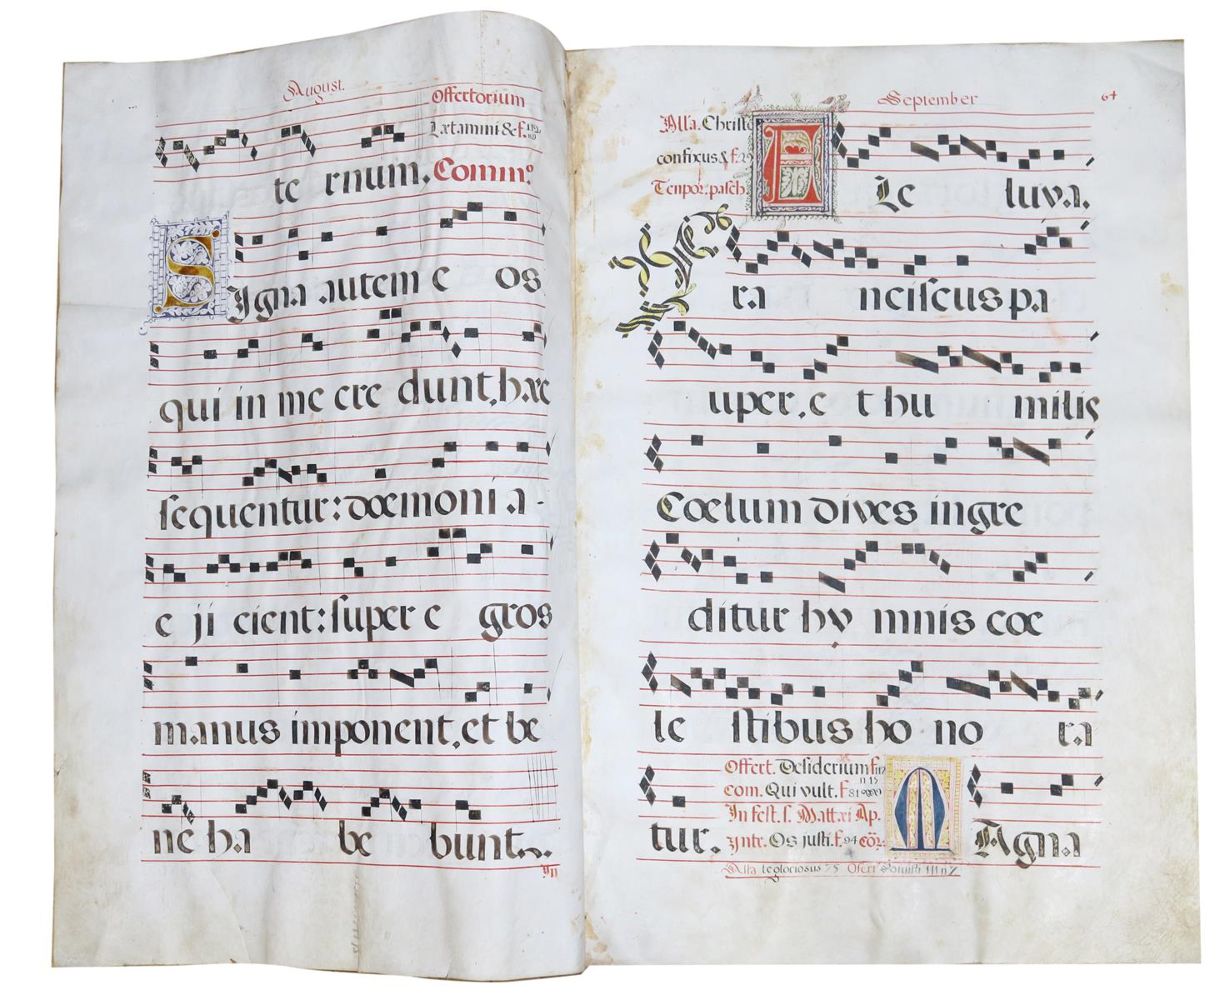 August.
Offertorium
Lætamini & f.
te rnum. Comm.º
SIgna autem e os
qui in me cre dunt, hæc
sequentur: dœmoni a-
e ji cient: super e gros
manus imponent, et be
ne ha be bunt.
September 64
Alla. Christo
confixus &
Tenpor. pasch.
ALe luva.
FRa nciscus pa
uper, e t hu milis
Cœlum dives ingre
ditur hy mnis cœ
le stibus ho no ra
Offert. Desiderium f.
com. Qui vult. f.
In fest. s. Mattæi Ap.
yntr. Os justi. f. 94 cõ.
tur. MAgna
Alla te gloriosus 75 Ofert